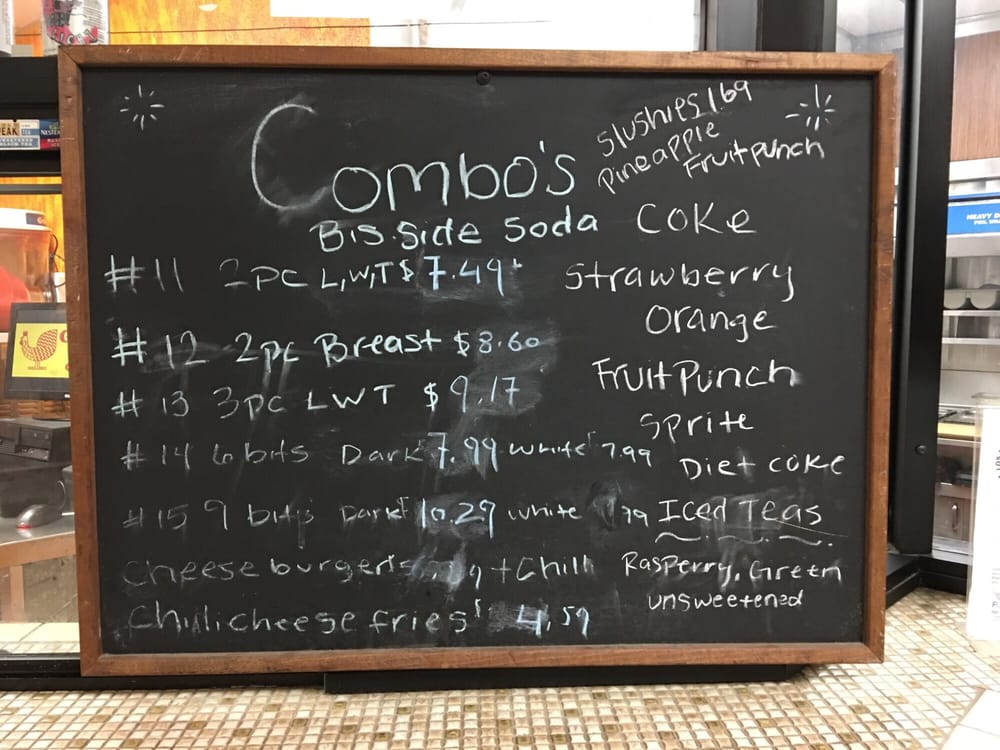 Combo's
Bis. Side Soda
#11 2pc L,W,T $ 7.49
#12 2pc Breast $8.60
#13 3pc LWT $9.17
#14 6 bits Dark 7.99 white 7.99
#15 9 bits Dark 10.29 white
Cheeseburger + Chili
Chilicheese fries 4.59
Slushies 1.69
Pineapple
Fruitpunch
Coke
Strawberry
Orange
Fruit Punch
Sprite
Diet coke
Iced Teas
Rasperry, Green
unsweetened
HEAVY D